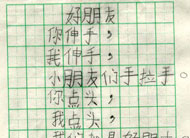 好朋友
你伸手，
我伸手，
小朋友们手拉手。
你点头，
我点头，